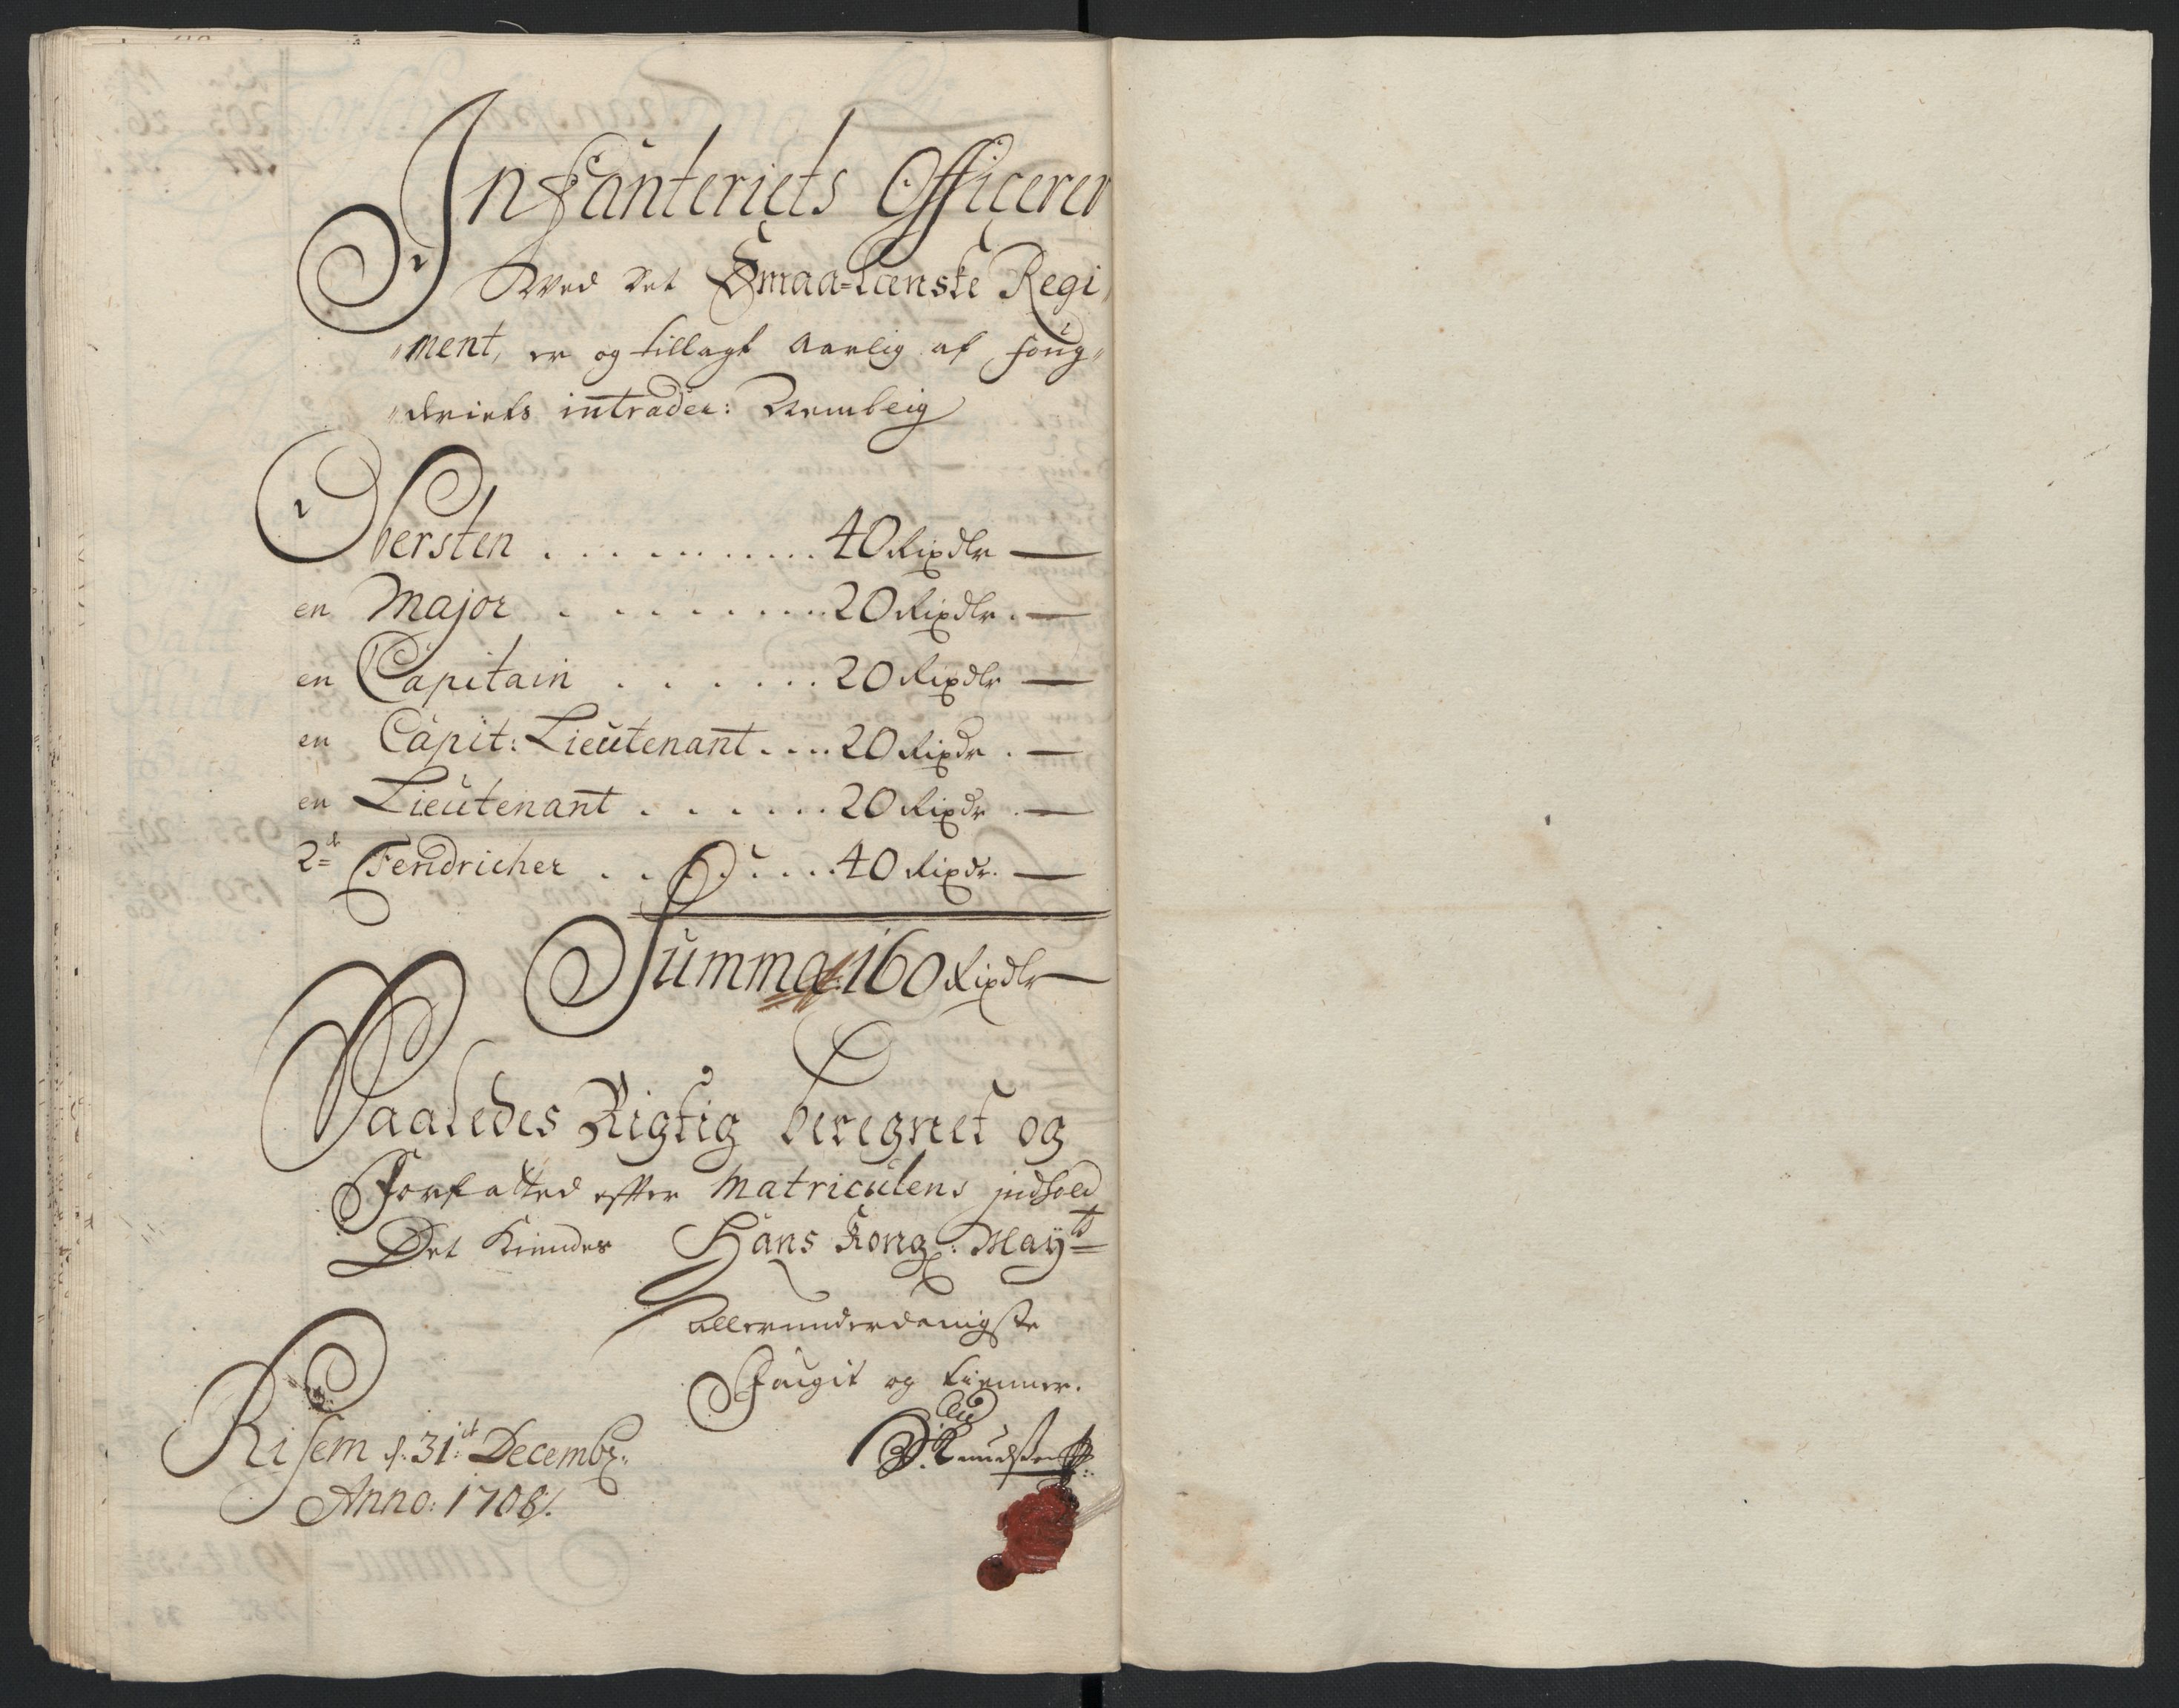 Infanteriets Officerer
Wed det Smaa-Lænske Regi
ment, er og tillagt aarlig af foug
deriets intrader: Nembleig
Obersten . . . . . . . . . . 40 Rixdlr —
en Major . . . . . . . . . 20 Rixdlr. —
en Capitain . . . . . . 20 Rixdlr —
en Capit: Lieutenant . . . . 20 Rixdr. —
en Lieutenant . . . . . . 20 Rixdr. —
2de Fendricher . . . . . . . 40 Rixdr. —
Summa 160 Rixdlr —
Saaledes Rigtig beregnet og
Forfatted effter Matriculens indhold
Det Kiendes Hans Kongl: Mayts
allerunderdanigste
Faugit og tienner.
Knudsen
Risem d. 31te Decembr:
Anno: 1708/.